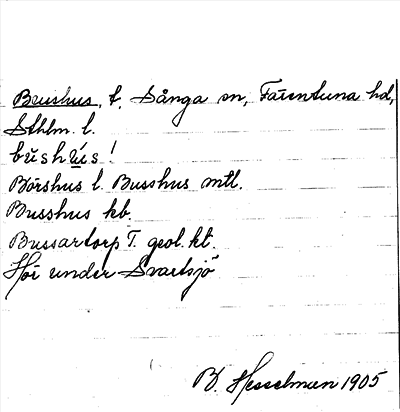 Brushus, t. Sånga sn, Färentuna hd,
Sthlm. l.
bŭshú̱s!
Börshus l. Busshus mtl.
Busshus kb.
Bussartorp T. geol. kt.
Hör under Svartsjö
B. Hesselman 1905